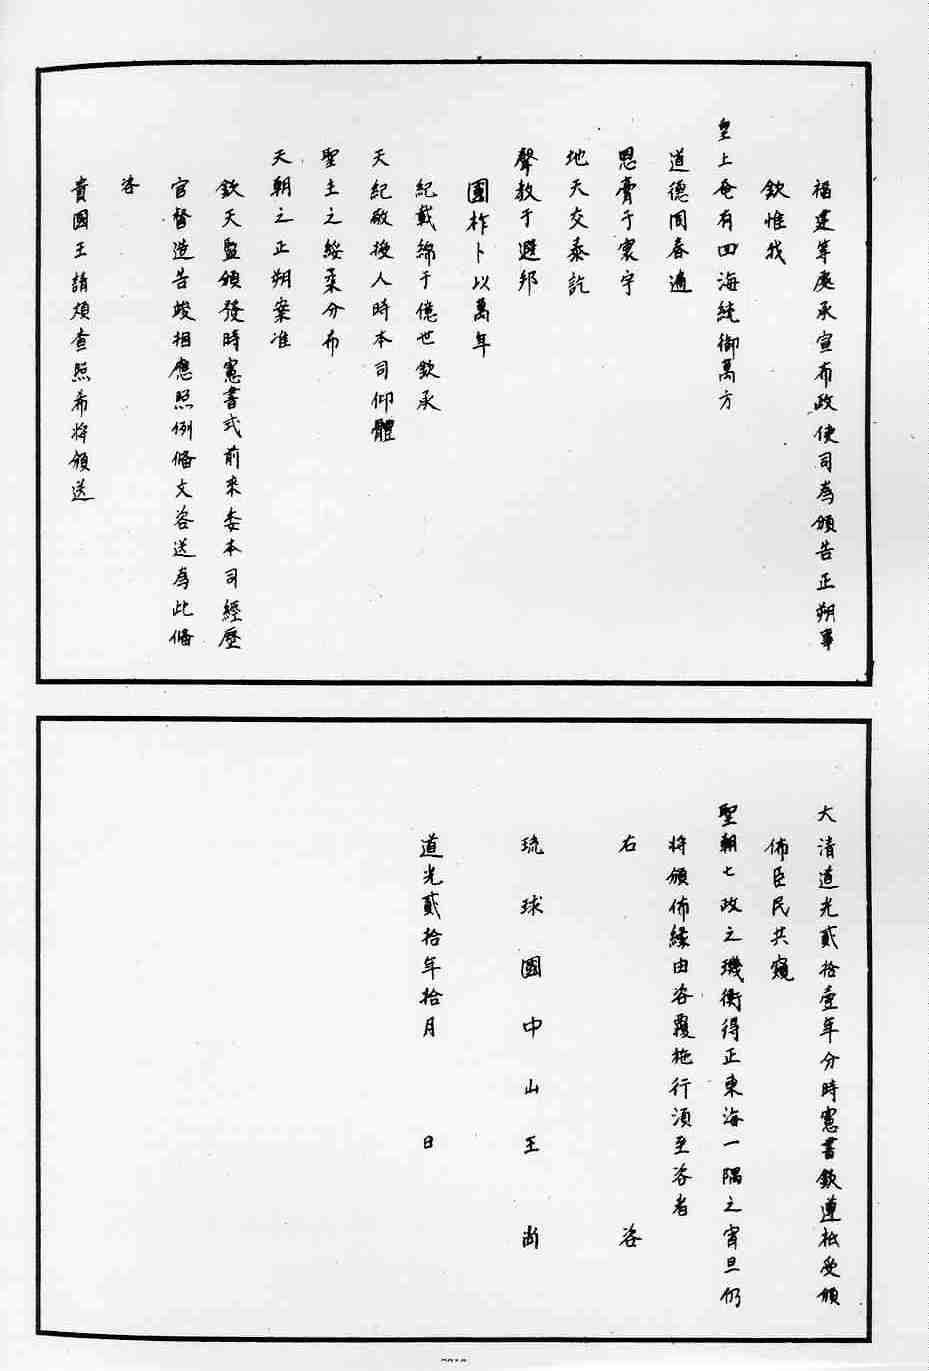 福建等處承宣布政使司為頒告正朔事
欽惟我
皇上奄有四海統御萬方
道德同春適
恩膏于寰宇
地天交泰訖
聲教于遐邦
國柞卜以萬年
紀載綿于億世欽承
天紀敬授人時本司仰體
聖主之綏柔分布
天朝之正朔案准
欽天監頒發時憲書式前來委本司經歷
官督造告竣相應照例俻文咨送為此俻
咨
貴國王請煩查照希將頒送
大清道光貳拾壹年分時憲書欽遵祗受頒
佈臣民共窺
聖朝七政之璣衡得正東海一隅之宵旦仍
將頒佈緣由咨覆施行須至咨者
右咨
琉球國中山王尚
道光貳拾年拾月日